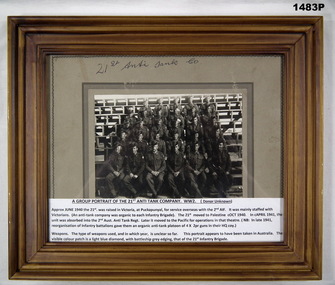 1483P
21st Anti Tank Co
A GROUP PORTRAIT OF THE 21ST ANTI TANK COMPANY. WW2. ( Donor Unknown)
Approx JUNE 1940 the 21st. was raised in Victoria, at Puckapunyal, for service overseas with the 2nd AIF. It was mainly staffed with
Victorians. (An anti-tank company was organic to each Infantry Brigade). The 21st moved to Palestine cOCT 1940. In cAPRIL 1941, the
unit was absorbed into the 2nd Aust. Anti Tank Regt. Later it moved to the Pacific for operations in that theatre. ( NB: In late 1941,
reorganisation of Infantry battalions gave them an organic anti-tank platoon of 4 X 2pr guns in their HQ coy.)
Weapons. The type of weapons used, and in which year, is unclear so far. This portrait appears to have been taken in Australia. The
visible colour patch is a light blue diamond, with battleship grey edging, that of the 21st Infantry Brigade.